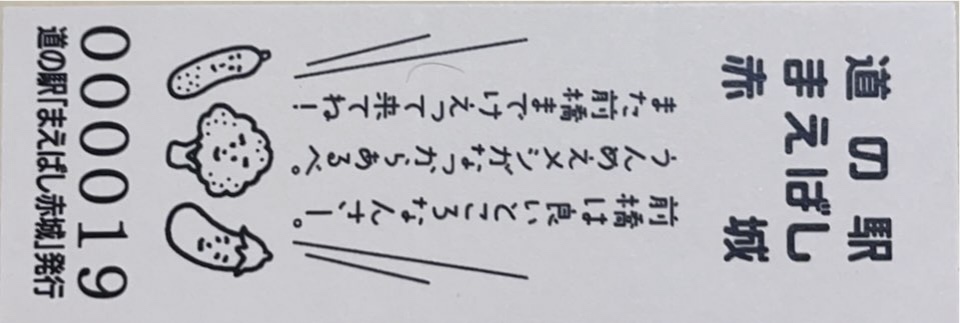 道の駅
まえばし
赤城
前橋は良いところなんさー。
うんめえメシがなっからあるべ。
また前橋までけえって来てね！
000019
道の駅「まえばし赤城」発行